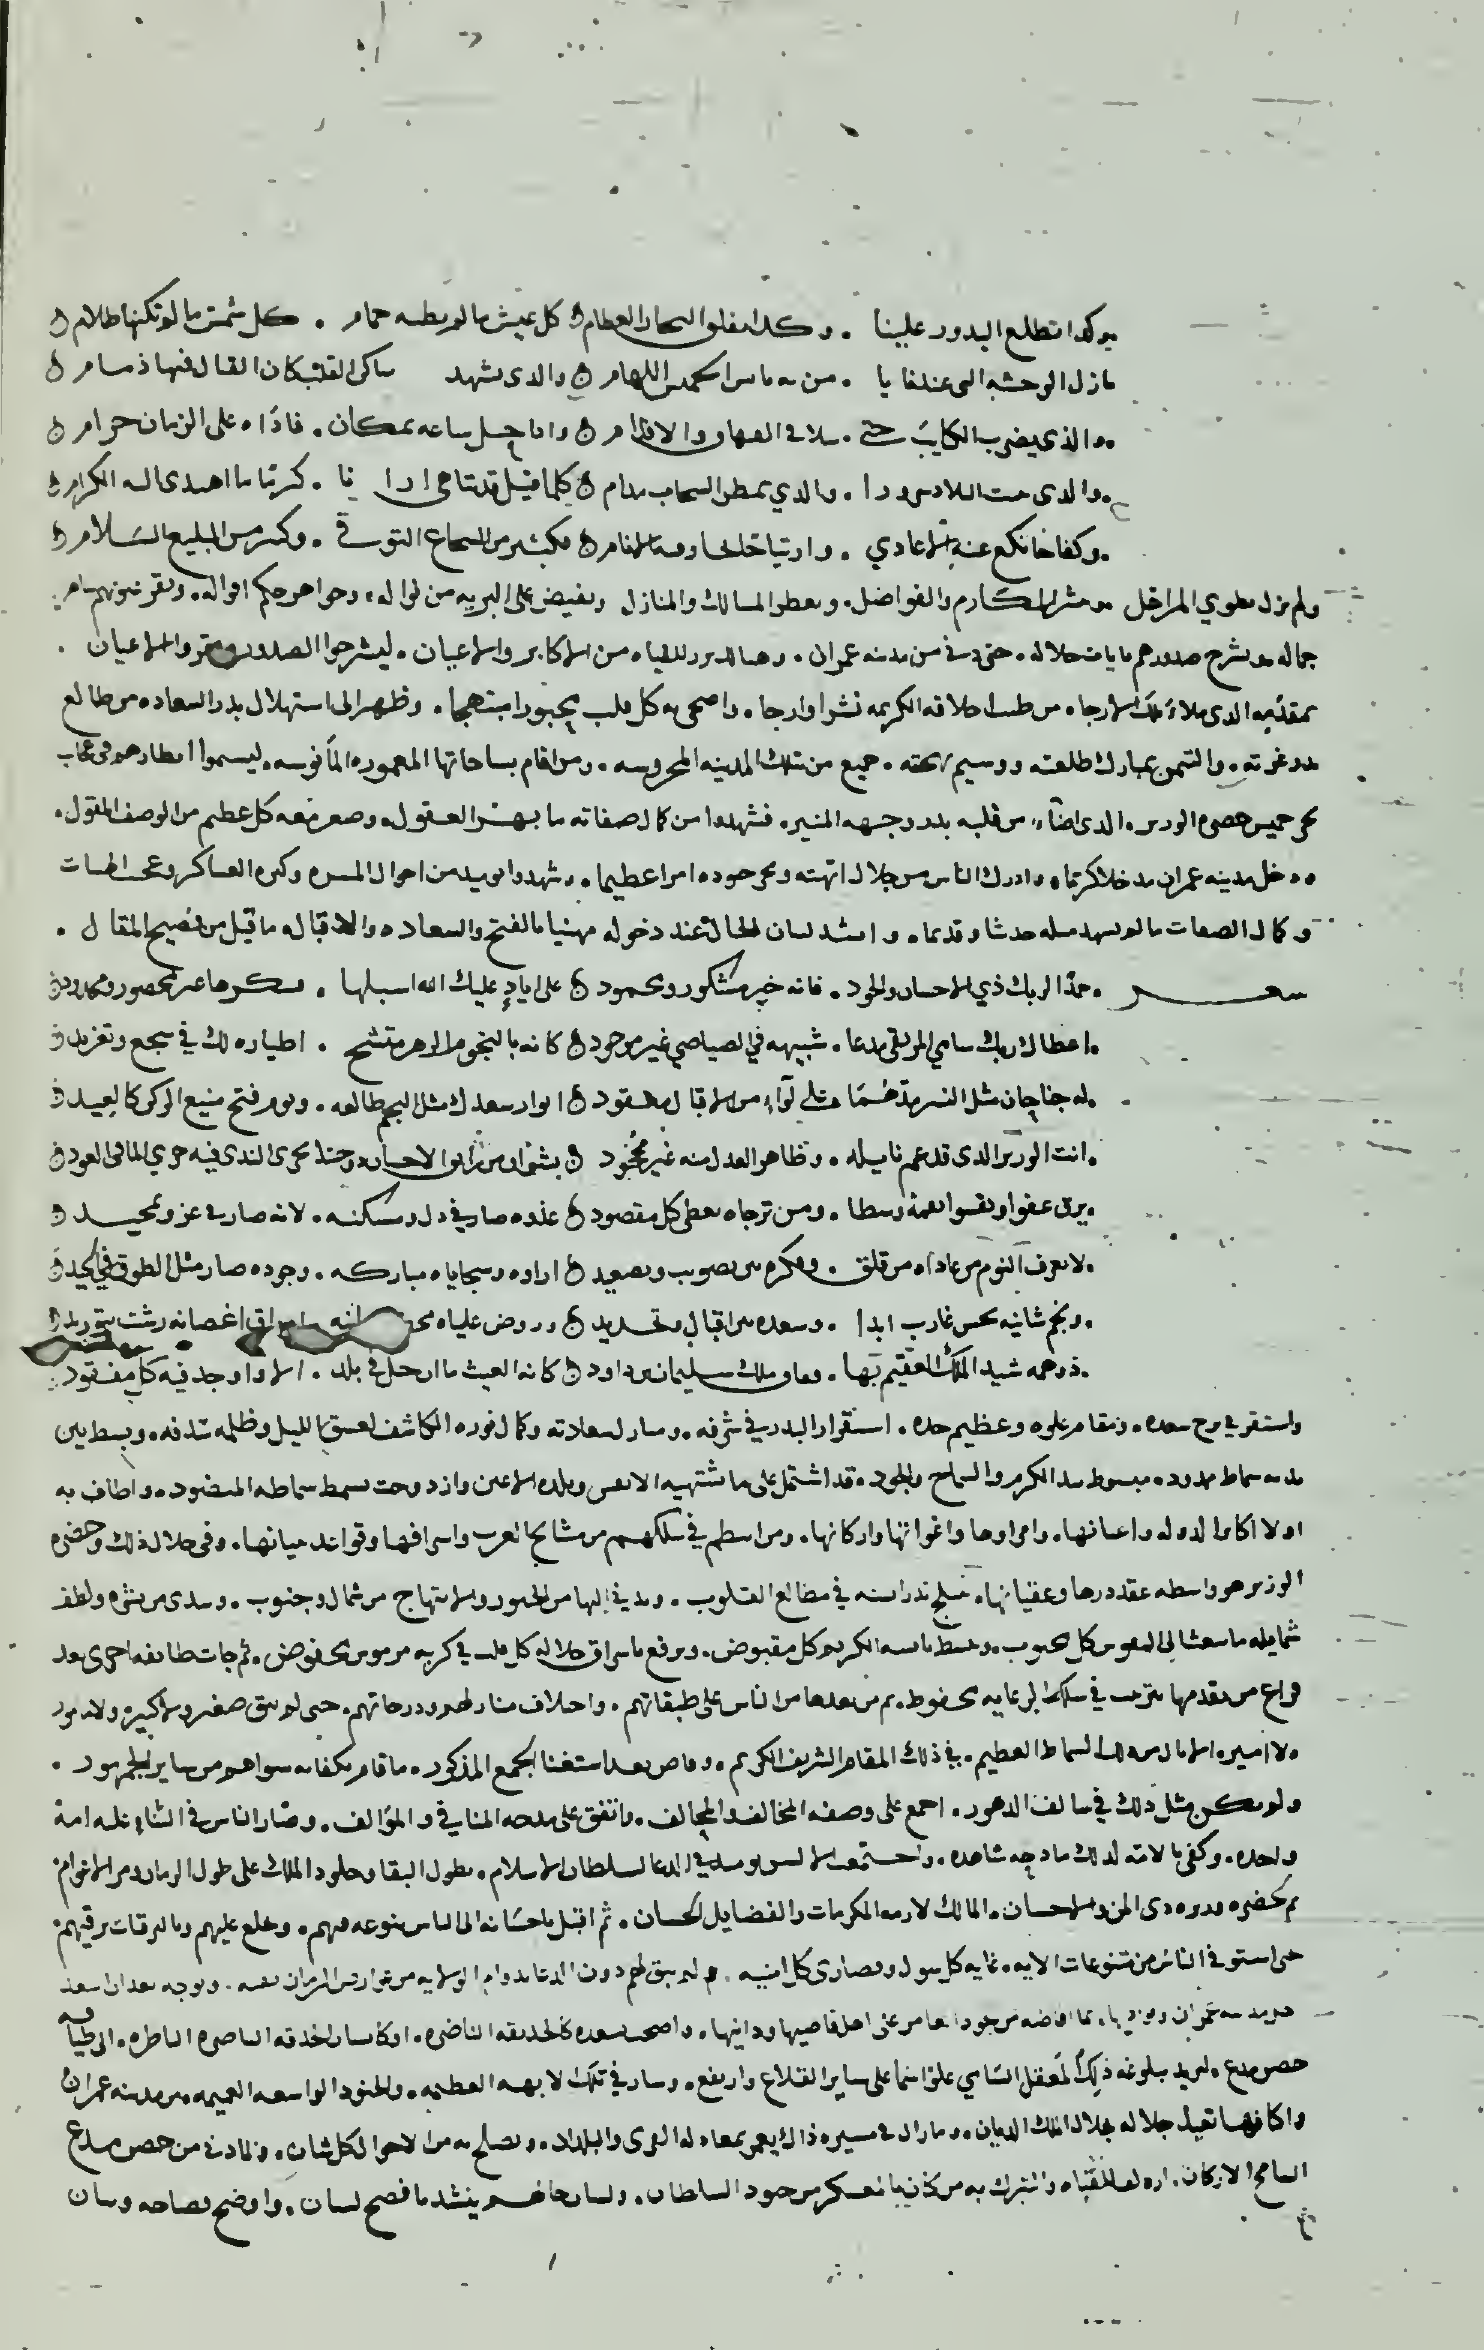 هوكذا تطلع البدور علينا . وكذا تقلق البحار العظام ۞ كل عيش ما لم تطبه حمام . كل شمس ما لم تكنها ظلام ۞
ازل الوحشه التى عندنا يا . من به يانس الخميس اللهام ۞ والذى يشهد ساكن القلب كان القتال فيها ذمام ۞
والذى يضرب الكتايب حتى . تتلاقى الفهاق والاقدام ۞ واذا حل ساعه بمكان . فاذاه على الزمان حرام ۞
والذى تنبت البلاد سرورا . والذي تمطر السحاب مدام ۞ كلما قيل قد تناهى ارانا . كرما ما اهتدى اليه الكرام ۞
وكفاحا تكع عنه الاعادي . وارتياحا تحار فيه الانام ۞ فكثير من الشجاع التوقي . وكثير من البليغ السلام ۞
ولم يزل يطوي المراحل وينشر المكارم والفواضل . ويعطر المسالك والمنازل ويفيض على البريه من نواله . وجواهر حكم اقواله . وتقر عيونهم بباهر
جماله ويشرح صدورهم بايات جلاله . حتى دنى من مدينه عمران . وهنالك برز للقياه من الاكابر والاعيان . ليشرحوا الصدور ويقروا الاعيان .
بمقدمه الذى ملاء تلك الارجاء من طيب اخلاقه الكريمه نشرا وارجا . واضحى به كل قلب محبورا مبتهجا . وظهر الى استهلال بدر السعاده من طالع
بدر غرته . والتيمن بمبارك طلعته ووسيم بهجته . جميع من بتلك المدينه المحروسه . ومن اقام بساحاتها المعموره المأنوسه . ليسموا ابصارهم فى عباب
بحر خميس حضره الوزير . الذى اضاء من قلبه بدر وجهه المنير . فشهدوا من كمال صفاته ما بهر العقول . وصغر معه كل عظيم من الوصف المقول .
ودخل مدينه عمران مدخلا كريما . وادرك الناس من جلال ابهته وبحر جوده امرا عظيما . وشهدوا يوميد من احوال المسره وكثره العساكر وعجب الهيات
وكمال الصفات ما لم يعهد مثله حديثا وقديما . وانشد لسان الحال عند دخوله مهنيا بالفتح والسعاده والاقبال . ما قيل من فصيح المقال .
شعر . حمدا لربك ذي الاحسان والجود . فانه خير مشكور ومحمود ۞ على اياد عليك الله اسبلها . بشكرها غير محصور ومحدود ۞
اعطاك ربك سامي المرتقى مدعا . شبيهه في الصياصي غير موجود ۞ كانه بالنجوم الزهر متشح . اطياره لك في سجع وتغريد ۞
له جناحان مثل النسر قد ضما على لواء من الاقبال معقود ۞ انوار سعدك مثل النجم طالعه . ويوم فتح منيع الوكر كالعيد ۞
انت الوزير الذى قد عم نايله . وظاهر العدل منه غير مجحود ۞ بشراه من الاحسان وجنتا يجرى الندى فيه جري الما فى العود ۞
يرق عفوا ويقسوا نقمة وسطا . ومن ترجاه يعطى كل مقصود ۞ عدوه صار في ذل ومسكنه . لانه صار فى عز وتمجيد ۞
لا يعرف النوم من عاداه من قلق . وفكره بين تصويب وتصعيد ۞ اراوه وسجاياه مباركه . وجوده صار مثل الطوق في الجيد ۞
ونجم شانيه نحس غارب ابدا . وسعده بين اقبال وتجديد ۞ وروض علياه اغصانه زينت بتوريد ۞
ذو همه شيد الملك العقيم بها . وفاق ملك سليمان بن داود ۞ كانه الغيث ما ان حل فى بلد . الا واوجد فيه كل مفقود ۞
واستقر فى برج سعده . ومقام علوه وعظيم جده . استقرار البدر في شرفه . وسار لسعادته وكمال نوره الكاشف لغسق الليل وظلمه سدفه . وبسط بين
يديه سماط ممدود . مبسوط بيد الكرم والسماح والجود . قد اشتمل على ما تشتهيه الانفس وتلذه الاعين وازدوجت بسمط سماطه المنضود . واطاف به
اولا اكابر الدوله واعيانها . وامراوها واغواتها واركانها . ومن انتظم في سلكهم من مشايخ العرب واشرافها وقواعد مبانها . وفى خلال ذلك وحضره
الوزير هو واسطه عقد درها وعقيانها . فبلج بدر انسه في مطالع القلوب . ويدني اليها من الحبور والابتهاج من شمال وجنوب . ويهدى من بشره ولطف
شمايله ما يبعث الى النفوس كل محبوب . ويبسط بانسه الكريم كل مقبوض . ويرفع باشراق جلاله كل قلب في كربه مرموس مخفوض . ثم جات طايفه اخرى بعد
فراغ من تقدمها بترتيب في سلك الرعايه محفوظ . ثم من بعدها من الناس على طبقاتهم . واختلاف منازلهم ودرجاتهم . حتى لم يبق صغير ولا كبير ولا مامور
ولا امير . الا نال من ذلك السماط العظيم . في ذلك المقام الشريف الكريم . وفاض بعد استغنا الجمع المذكور . ما قام بكفايه سواهم من ساير الجمهور .
ولم يكن مثل ذلك في سالف الدهور . اجمع على وصفه المخالف والمحالف . واتفق على مدحه المنافي والمؤالف . وصار الناس فى الثناء عليه امة
واحده . وكفى بالامه لذلك مادحه شاهده . واجتمعت الالسن يوميذ في الدعا لسلطان الاسلام . بطول البقا وخلود الملك على طول الزمان ومر الاعوام .
ثم لحضره وزيره ذى المن والاحسان . المالك لازمه المكرمات والفضايل الحسان . ثم اقبل باحسانه الى الناس بنوعه فيهم . وخلع عليهم وبالترقيات يرقيهم .
حتى استوفى الناس من متنوعات الايه . غايه كل سول وقصارى كل امنيه . ولم يبق لهم دون الدعا بدوام الوزير من عوارض الزمان بغيه . وتوجه بعد ان اسعد
مدينه عمران ونواديها . بما افاضه من جود انعامه على اهل قاصيها ودانيها . واضحت بسعده كالحديقه الناضره . او كانسان لحدقه الباصره الناظره . الى طيافه
حصن مدع . ليزيد بلوغه ذلك المعقل السامي علوا سما على ساير القلاع وارتفع . وسار في تلك الابهه العظيمه . والجنود الواسعه العميمه . من مدينه عمران
واكنافها تميد جلاله بجلال الملك الديان . وما زال فى مسيره ذاك يعمر بعدله القرى والبلدان . ويصلح به من الاحوال كل شان . ولما دنى من حصن مدع
السامخ الاركان . اوله للقياه والتبرك به من كان به من عسكر من جنود السلطان . ولسان حالهم ينشد بافصح لسان . واوضح فصاحه وبيان